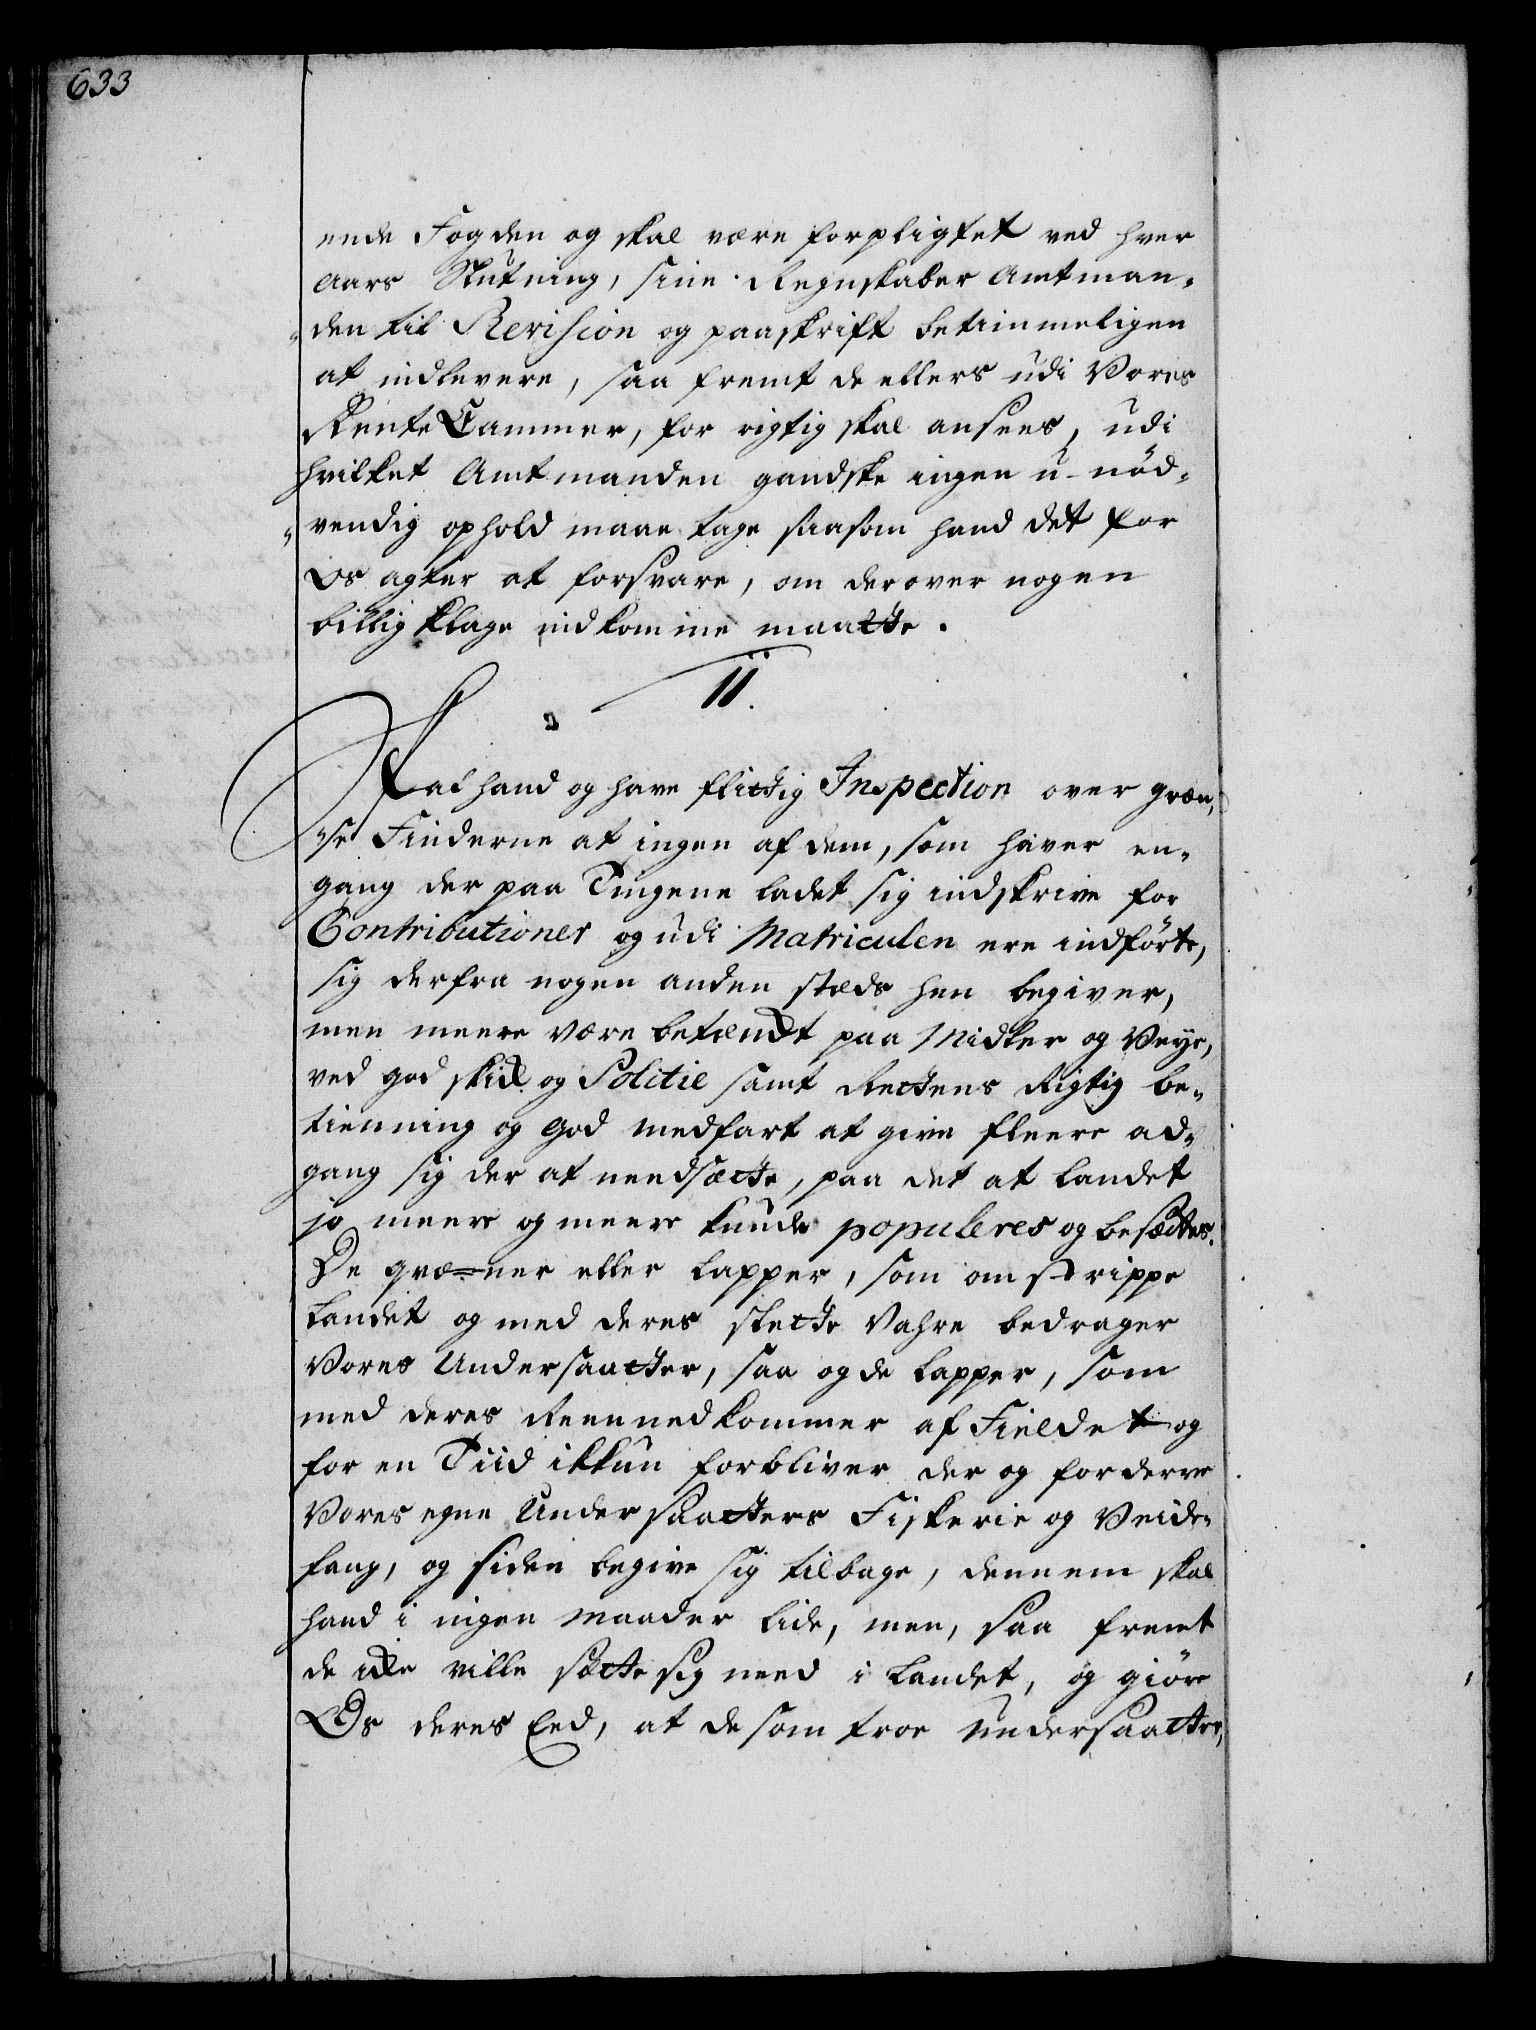 633
ende Fogden og skal være forpligtet ved hver
Aars Slutning, sine Regnskaber Amtman-
den til Revision og paaskrift betimmeligen
at indlevere, saa fremt de ellers udi Vores
RenteCammer, for rigtig skal ansees, udi
hvilket Amtmanden gandske ingen u-nöd-
vendig ophold maae tage saasom hand det for
Os agter at forsvare, om derover nogen
billig klage indkomme maatte.
11.
Skal hand og have flittig Inspection over græn-
se Finderne at ingen af dem, som haver en-
gang der paa Tingene ladet sig indskrive for
Contributioner og udi Matriculen ere indförte,
sig derfra nogen anden stæds hen begiver,
men meere være betændt paa Midler og Veye,
ved god skik og Politie samt Rettens Rigtig be-
tienning og god medfart at give fleere ad-
gang sig der at needsætte, paa det at Landet
jo meere og meere kunde populeres og besættes.
De qvæner eller Lapper, som omstrippe
Landet og med deres slette Vahre bedrager
Vores Undersaatter, saa og de Lapper, som
med deres Reen nedkommer af Fieldet og
for en Tiid ikkun forbliver der og forderve
Vores egne Undersaatters Fiskerie og Veide-
fang, og siden begive sig tilbage, dennem skal
hand i ingen Maader lide, men, saa fremt
de ikke ville sætte sig need i Landet, og giöre
Os deres Eed, at de som troe Undersaatter,